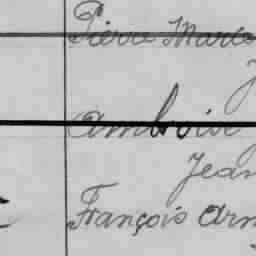 Pierre Marc
J
Ambroise
Jean
François Arm